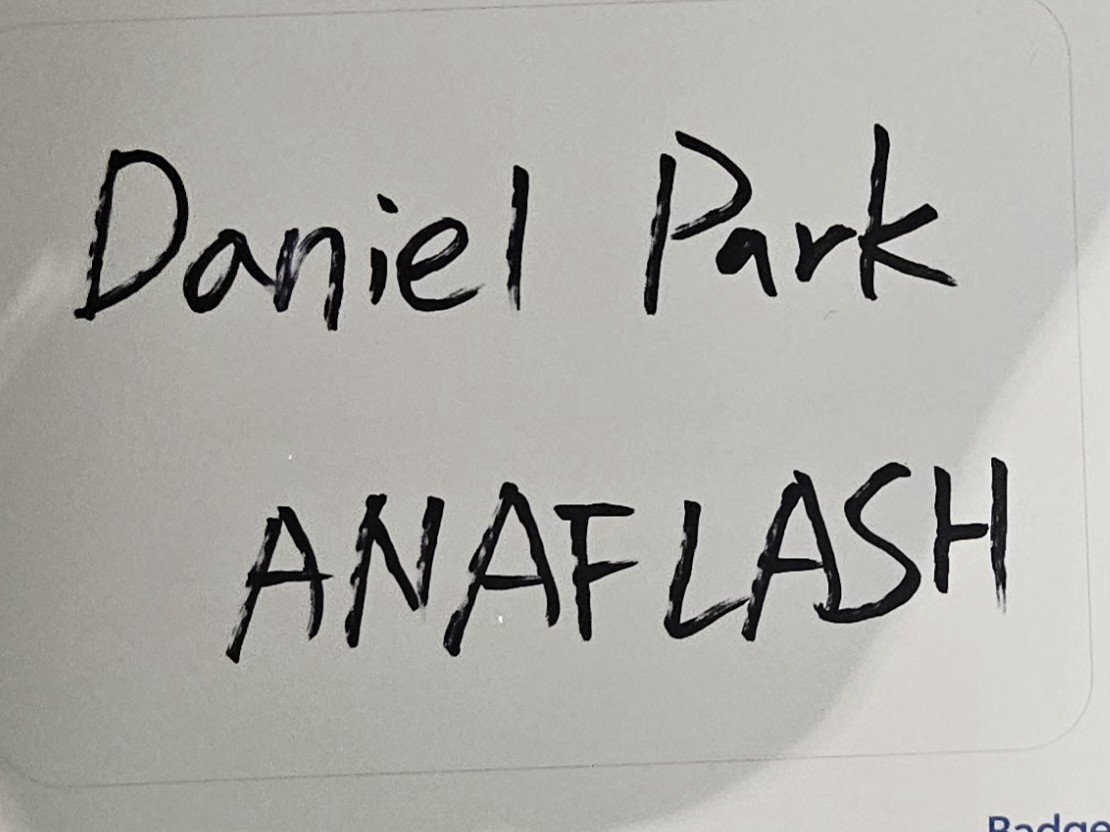 Daniel Park
ANAFLASH
Badge